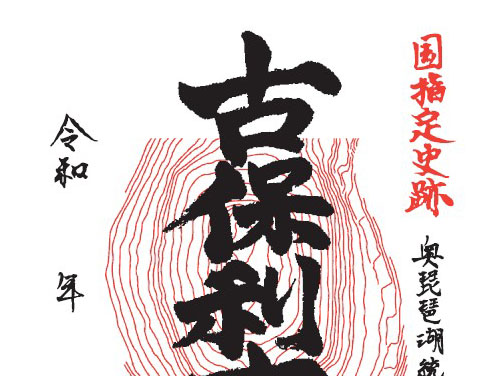 国指定史跡
奥琵琶湖
古保利
令和 年